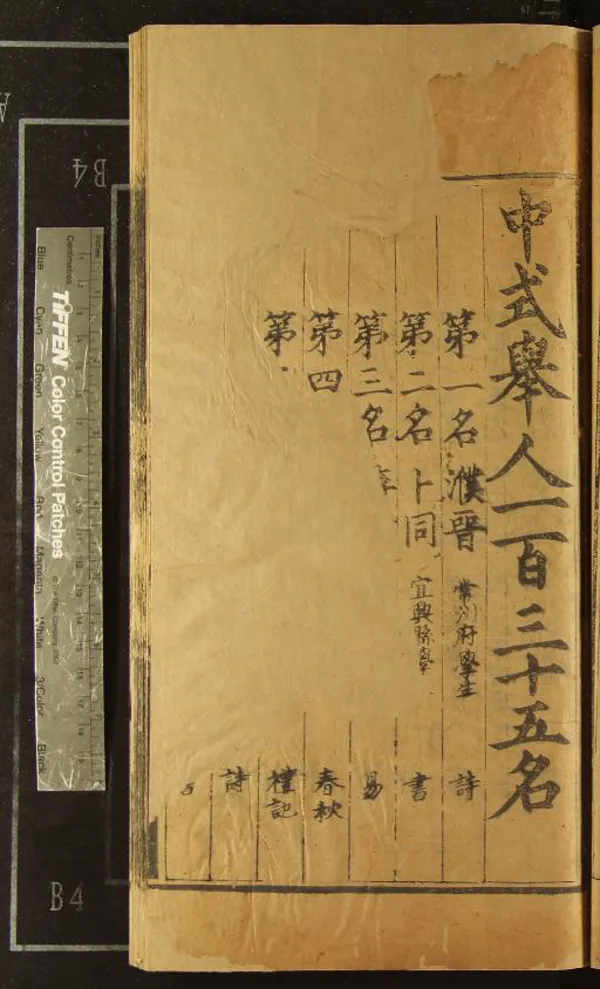 中式舉人一百三十五名
第一名 濮晋 常州府學生 詩
第二名 卜同 宜興縣 書
第三名 易
第四 春秋
第 禮記
詩
TIFFEN Color Control Patches
Centimetres
Inches
Blue
Cyan
Green
Yellow
Red
Magenta
White
3/Color
Black
B4
B4
A